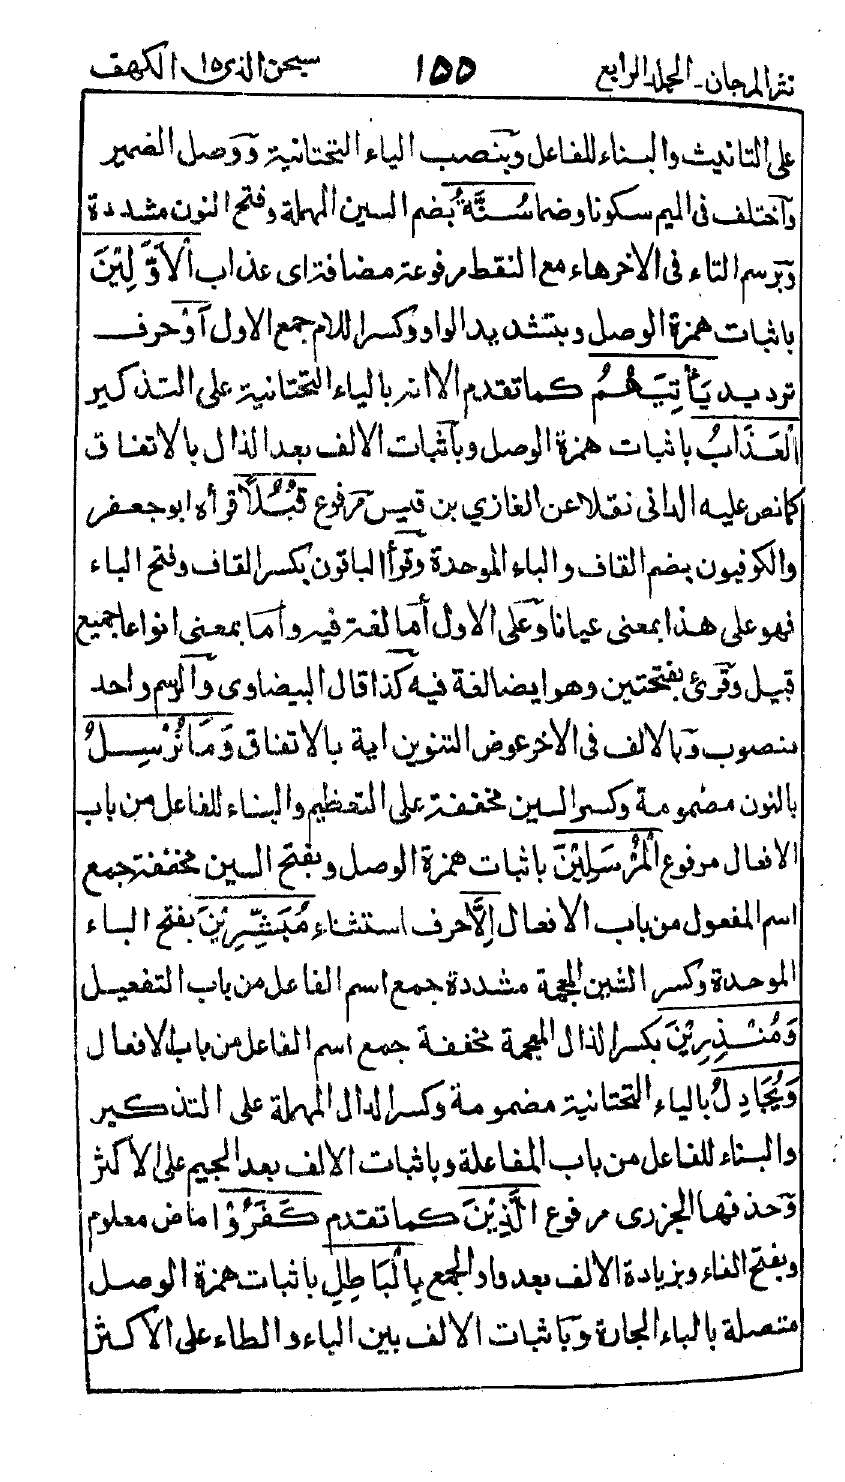 نثر المرجان - المجلد الرابع ١٥٥ سبحن الذى ١٥ الكهف
على التانيث والبناء للفاعل وبنصب الياء التحتانية ووصل الضمير
واختلف فى الميم سكونا وضما سُنَّةُ بضم السين المهملة وفتح النون مشددة
وبرسم التاء فى الآخر هاء مع النقط مرفوعة مضافة اى عذاب الْاَوَّلِيْنَ
باثبات همزة الوصل وبتشديد الواو وكسر اللام جمع الاول اَوْ حرف
ترديد يَاْتِيَهُمُ كما تقدم الا انه بالياء التحتانية على التذكير
الْعَذَابُ باثبات همزة الوصل وباثبات الالف بعد الذال بالاتفاق
كما نص عليه الدانى نقلا عن الغازي بن قيس مرفوع قُبُلًا قرأه ابو جعفر
والكوفيون بضم القاف والباء الموحدة وقرأ الباقون بكسر القاف وفتح الباء
فهو على هذا بمعنى عيانا وعلى الاول اما لغة فيه واما بمعنى انواعا جميع
قبيل وقرئ بفتحتين وهو ايضا لغة فيه كذا قال البيضاوى والرسم واحد
منصوب وبالالف فى الآخر عوض التنوين اية بالاتفاق وَمَا نُرْسِلُ
بالنون مضمومة وكسر السين مخففة على التعظيم والبناء للفاعل من باب
الافعال مرفوع الْمُرْسَلِيْنَ باثبات همزة الوصل وبفتح السين مخففة جمع
اسم المفعول من باب الافعال اِلَّا حرف استثناء مُبَشِّرِيْنَ بفتح الباء
الموحدة وكسر الشين المعجمة مشددة جمع اسم الفاعل من باب التفعيل
وَمُنْذِرِيْنَ بكسر الذال المعجمة مخففة جمع اسم الفاعل من باب الافعال
وَيُجَادِلُ بالياء التحتانية مضمومة وكسر الدال المهملة على التذكير
والبناء للفاعل من باب المفاعلة وباثبات الالف بعد الجيم على الاكثر
وحذفها الجزرى مرفوع الَّذِيْنَ كما تقدم كَفَرُوْا ماض معلوم
وبفتح الفاء وبزيادة الالف بعد واو الجمع بِالْبَاطِلِ باثبات همزة الوصل
متصلة بالباء الجارة وباثبات الالف بين الباء والطاء على الاكثر